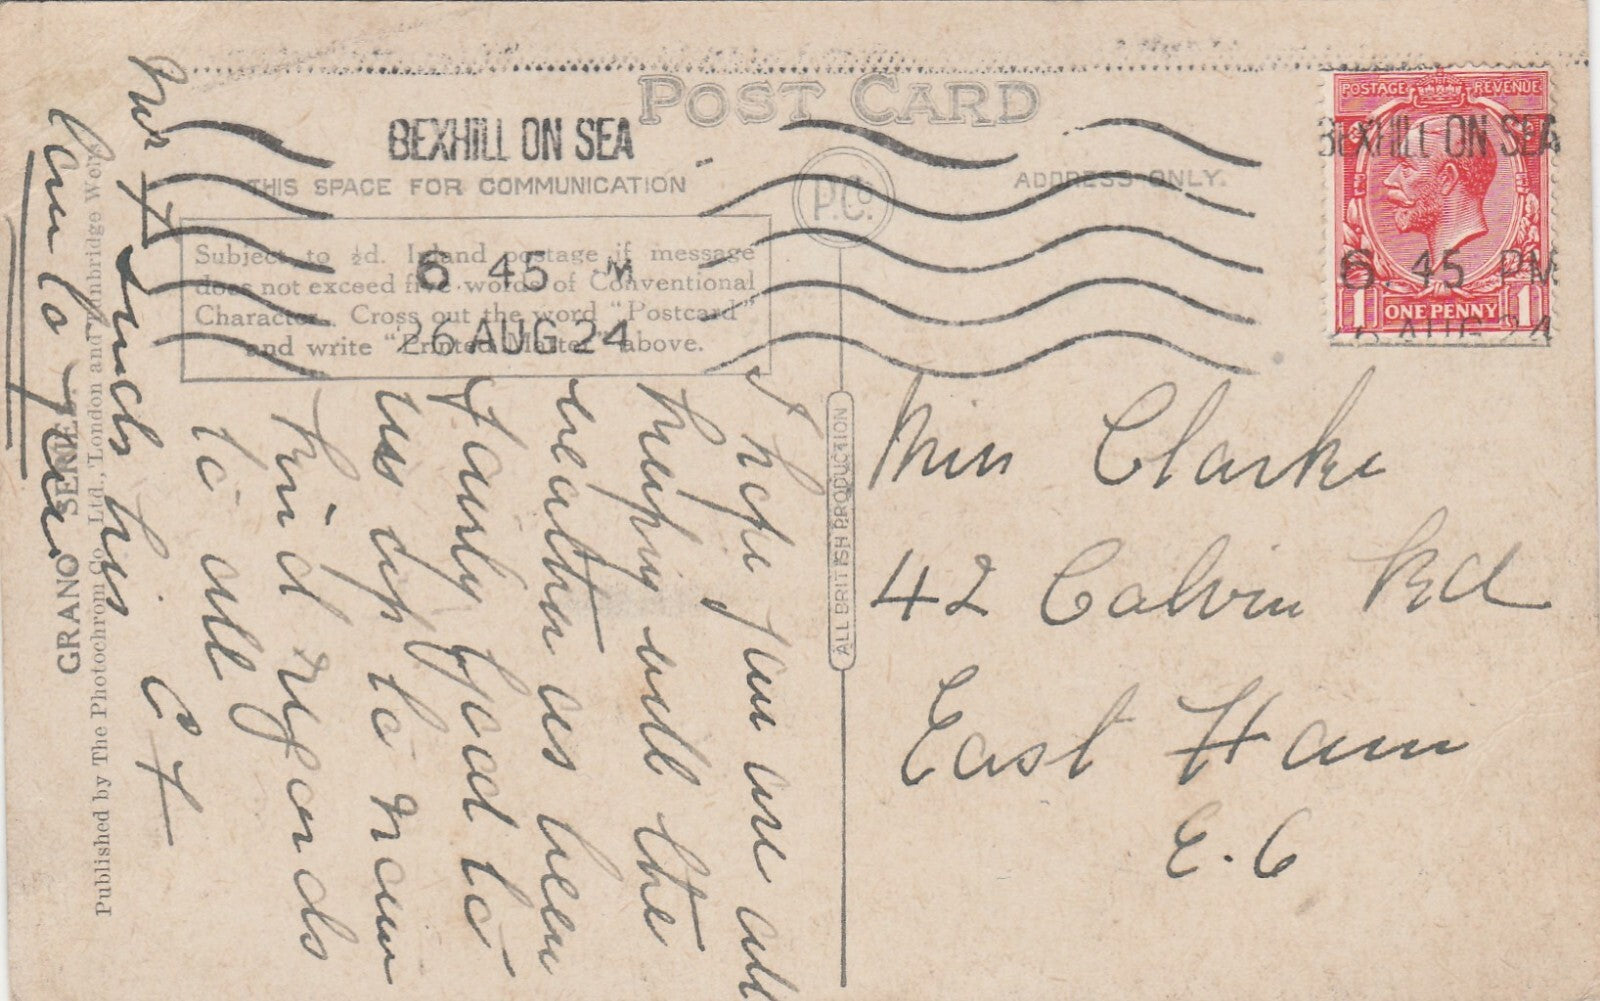 POST CARD
BEXHILL ON SEA
THIS SPACE FOR COMMUNICATION
P.Co.
ADDRESS ONLY.
Subject to ½d. Inland postage if message
does not exceed five words of Conventional
Character. Cross out the word "Postcard"
and write "Printed Matter" above.
6 45 PM
26 AUG 24
POSTAGE REVENUE
BEXHILL ON SEA
6. 45 PM
1 ONE PENNY 1
26 AUG 24
ALL BRITISH PRODUCTION
GRANO SERIES.
Published by The Photochrom Co. Ltd., London and Tunbridge Wells.
I hope you are all
happy well the
weather as been
fairly good to
us up to now
kind regards
to all
Mrs F sends his
to you
Miss Clarke
42 Calvin Rd
East Ham
E. 6